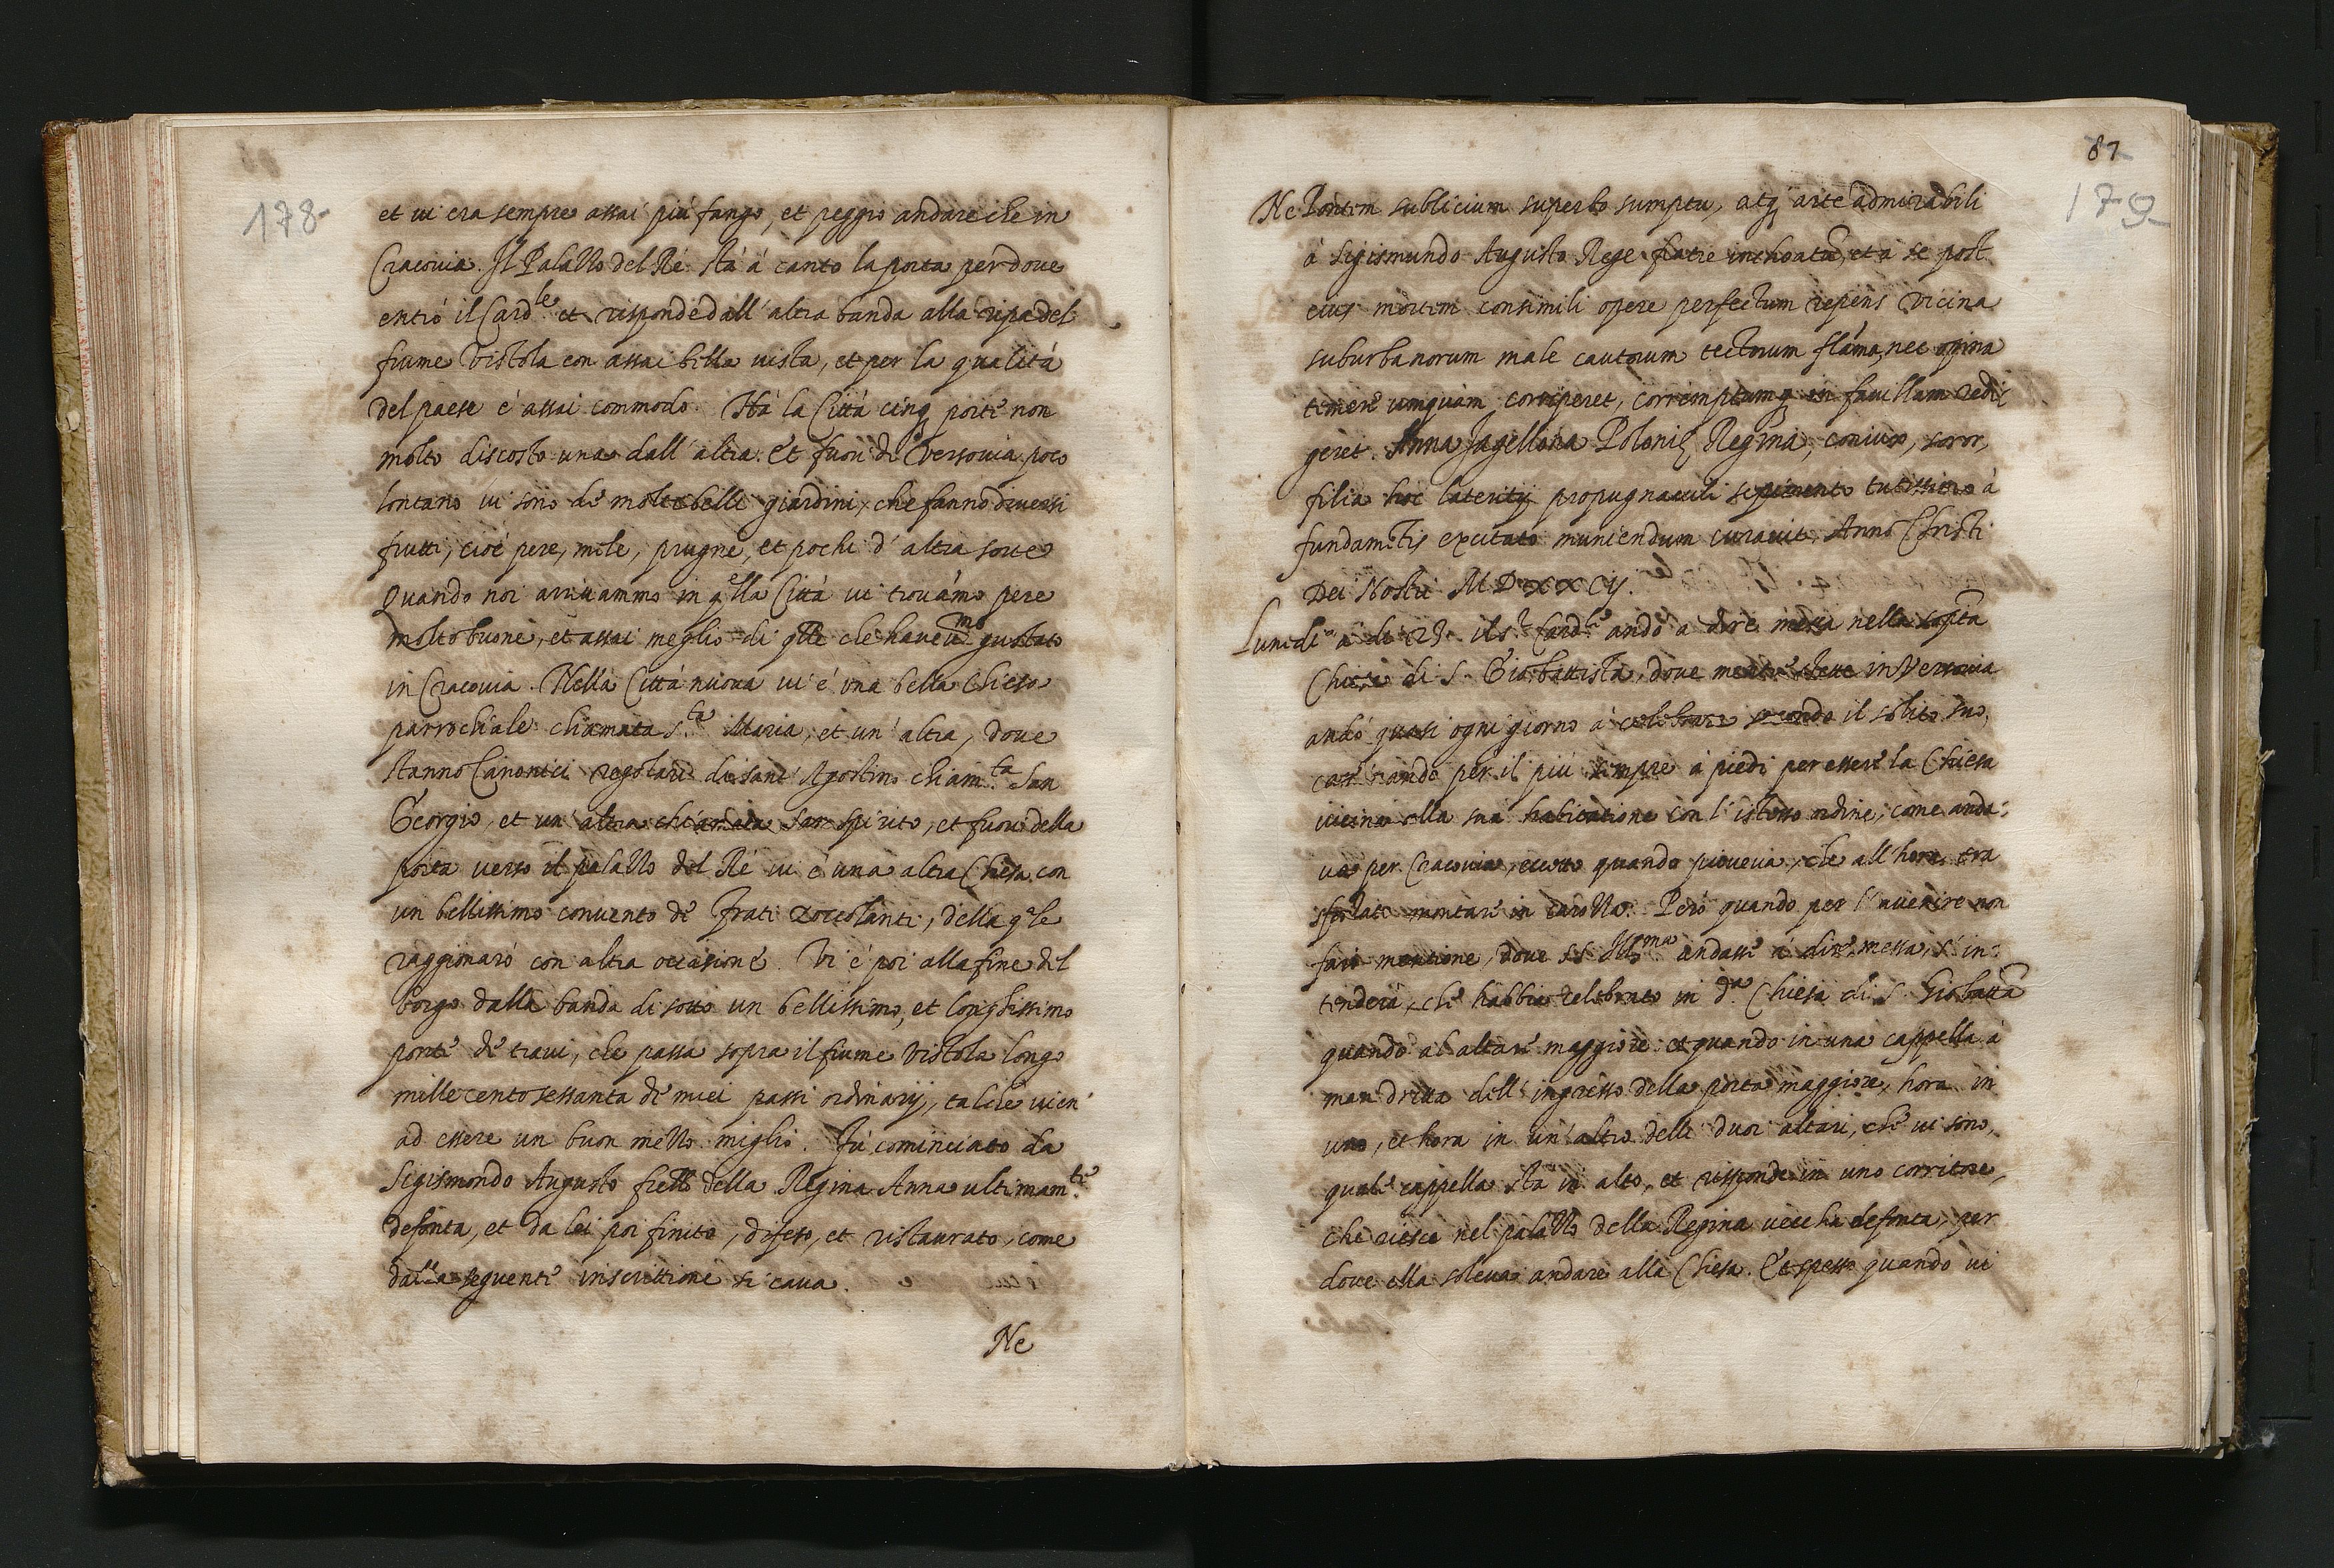 178
et vi era sempre assai più fango, et peggio andare che in
Cracovia. Il Palazzo del Rè stà à canto la porta per dove
entrò il Card.le et risponde dall'altra banda alla ripa del
fiume Vistola con assai bella vista, et per la qualità
del paese è assai commodo. Hà la Città cinq porte non
molto discosto una dall'altra. Et fuori di Versovia poco
lontano vi sono di molte belli giardini, che fanno diversi
frutti, cioè pere, mele, prugne, et pochi d'altra sorte
Quando noi arrivammo in qlla Città vi trovamo pere
molto buone, et assai meglio di qlle che havevmo gustato
in Cracovia. Nella Città nuova vi è una bella Chiesa
parrochiale chiamata S.ta Maria, et un'altra, dove
stanno Canonici regolari di sant'Agostino chiam.ta San
Georgio, et un'altra chiamata San Spirito, et fuori della
porta verso il palazzo del Rè vi è una altra Chiesa con
un bellissimo convento de Frati zoccolanti, della qle
raggionarò con altra occasione. Vi è poi alla fine del
borgo dalla banda di sotto un bellissimo, et longhissimo
ponte de travi, che passa sopra il fiume Vistola longo
mille cento sessanta de miei passi ordinarij, talche vien
ad essere un buon mezzo miglio. Fù cominciato da
Sigismondo Augusto frello della Regina Anna ultimam.te
defonta, et da lei poi finito, difeso, et ristaurato, come
dalla seguente inscrittione si cava.
Ne
87
179
Ne Pontem sublicium superbo sumptu, atq arte admirabili
à Sigismundo Augusto Rege fratre inchoatũ, et à se post
eius mortem consimili opere perfectum repens vicina
suburbanorum male cautorum tectorum flãma, nec opina
temere umquam corriperet, corremptumq in favillam redi
geret. Anna Jagellona Polonię Regina, coniux, soror,
filia hoc lateritij propugnaculi sepimento tutissimo à
fundamẽtis excitato muniendum curavit. Anno Christi
Dei Nostri MDXXCij.
Lunedì a di 23. il s.r Card.le andò a dire messa nella sopta
Chiesa di S. Gio: battista, dove mentre stette in Versovia
andò quasi ogni giorno à celebrare secondo il solito suo,
caminando per il più sempre à piedi per essere la Chiesa
vicina alla sua habitatione con l'istesso ordine, come anda:
va per Cracovia, eccetto quando pioveva, che all'hora era
sforzato montare in carozza. Però quando per l'avenire non
farò mentione, dove SS Ill.ma andasse à dire messa, s'in:
tenderà, che habbia celebrato in d.a Chiesa di S. Gio batta
quando al altare maggiore et quando in una cappella à
man dritta dell'ingresso della porta maggiore, hora in
uno, et hora in un'altro delli duoi altari, che vi sono,
quale cappella stà in alto, et risponde in uno corritore,
che riesce nel palazzo della Regina vecchia defonta, per
dove ella soleva andare alla Chiesa. Et spesso quando vi